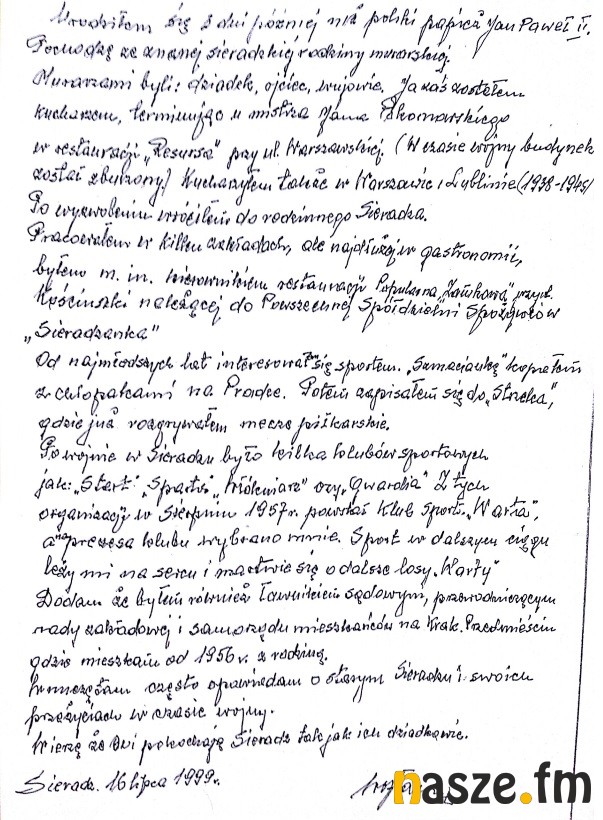 Urodziłem się 2 dni później niż polski papież Jan Paweł II.
Pochodzę ze znanej sieradzkiej rodziny murarskiej.
Murarzami byli: dziadek, ojciec, wujowie. Ja zaś zostałem
kucharzem, terminując u mistrza Jana
w restauracji „Resursa" przy ul. Warszawskiej. (W czasie wojny budynek
został zburzony) Kucharzyłem także w Warszawie i Lublinie (1938-1945)
Po wyzwoleniu wróciłem do rodzinnego Sieradza.
Pracowałem w kilku zakładach, ale najdłużej w gastronomii,
byłem m. in. kierownikiem restauracji Popularna, „Zamkowa", przy ul.
Kościuszki należącej do Powszechnej Spółdzielni Spożywców
„Sieradzanka"
Od najmłodszych lat interesowałem się sportem. „Szmaciankę" kopałem
z chłopakami na Pradze. Potem zapisałem się do „Strzelca",
gdzie już rozgrywałem mecze piłkarskie.
Po wojnie w Sieradzu było kilka klubów sportowych
jak: „Start" „Sparta" „Włókniarz" czy „Gwardia" Z tych
organizacji w Sierpniu 1957r. powstał Klub Sport. „Warta",
a na prezesa klubu wybrano mnie. Sport w dalszym ciągu
leży mi na sercu i martwię się o dalsze losy „Warty"
Dodam że byłem również ławnikiem sądowym, przewodniczącym
rady zakładowej i samorządu mieszkańców na Krak. Przedmieściu
gdzie mieszkam od 1956 r. z rodziną.
Wnuczętom często opowiadam o starym Sieradzu i swoich
przeżyciach w czasie wojny.
Wierzę że oni pokochają Sieradz tak jak ich dziadkowie.
Sieradz. 16 lipca 1999r.
nasze.fm